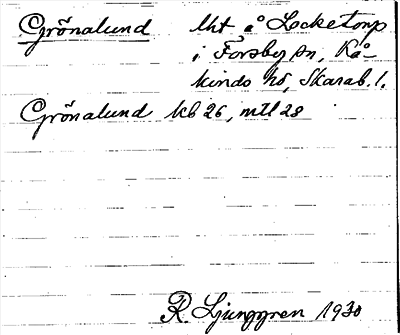 Grönalund lht å Locketorp
i Forsby sn, Kå-
kinds hd, Skarab. l.
Grönalund kb 26, mtl 28
R. Ljunggren 1930